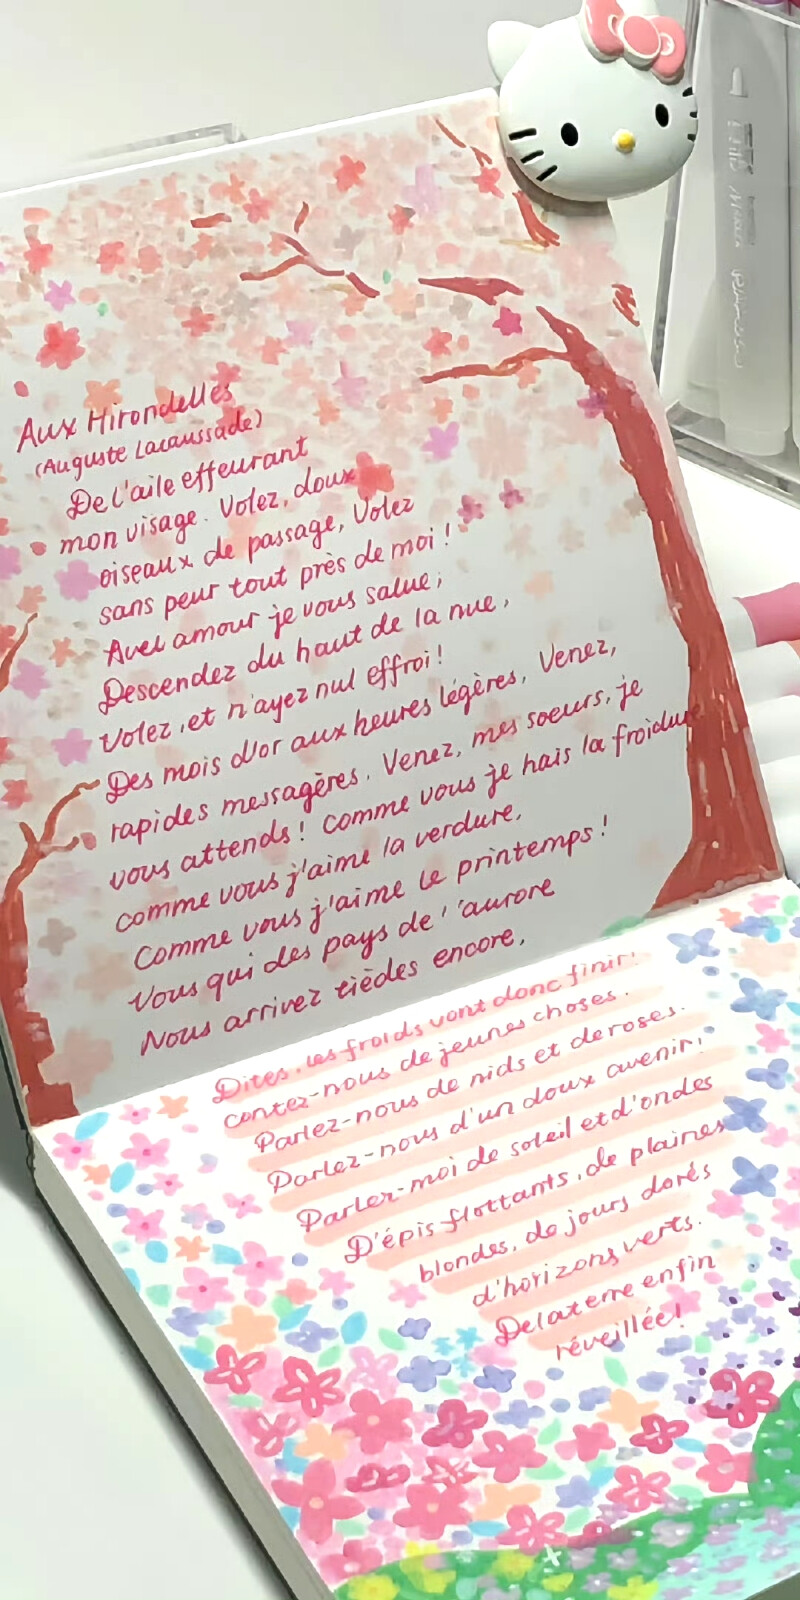 Aux Hirondelles
(Auguste Lacaussade)
De l'aile effeurant
mon visage. Volez, doux
oiseaux de passage, Volez
sans peur tout près de moi !
Avel amour je vous salue;
Descendez du haut de la nue,
Volez, et n'ayez nul effroi !
Des mois d'or aux heures légères, Venez,
rapides messagères. Venez, mes soeurs, je
vous attends ! Comme vous je hais la froidure
comme vous j'aime la verdure,
Comme vous j'aime le printemps !
Vous qui des pays de l'aurore
Nous arrivez tièdes encore,
Dites, les froids vont donc finir!
contez-nous de jeunes choses.
Parlez-nous de nids et de roses.
Parlez-nous d'un doux avenir!
Parlez-moi de soleil et d'ondes
D'épis flottants, de plaines
blondes, de jours dorés
d'horizons verts.
De la terre enfin
réveillée!